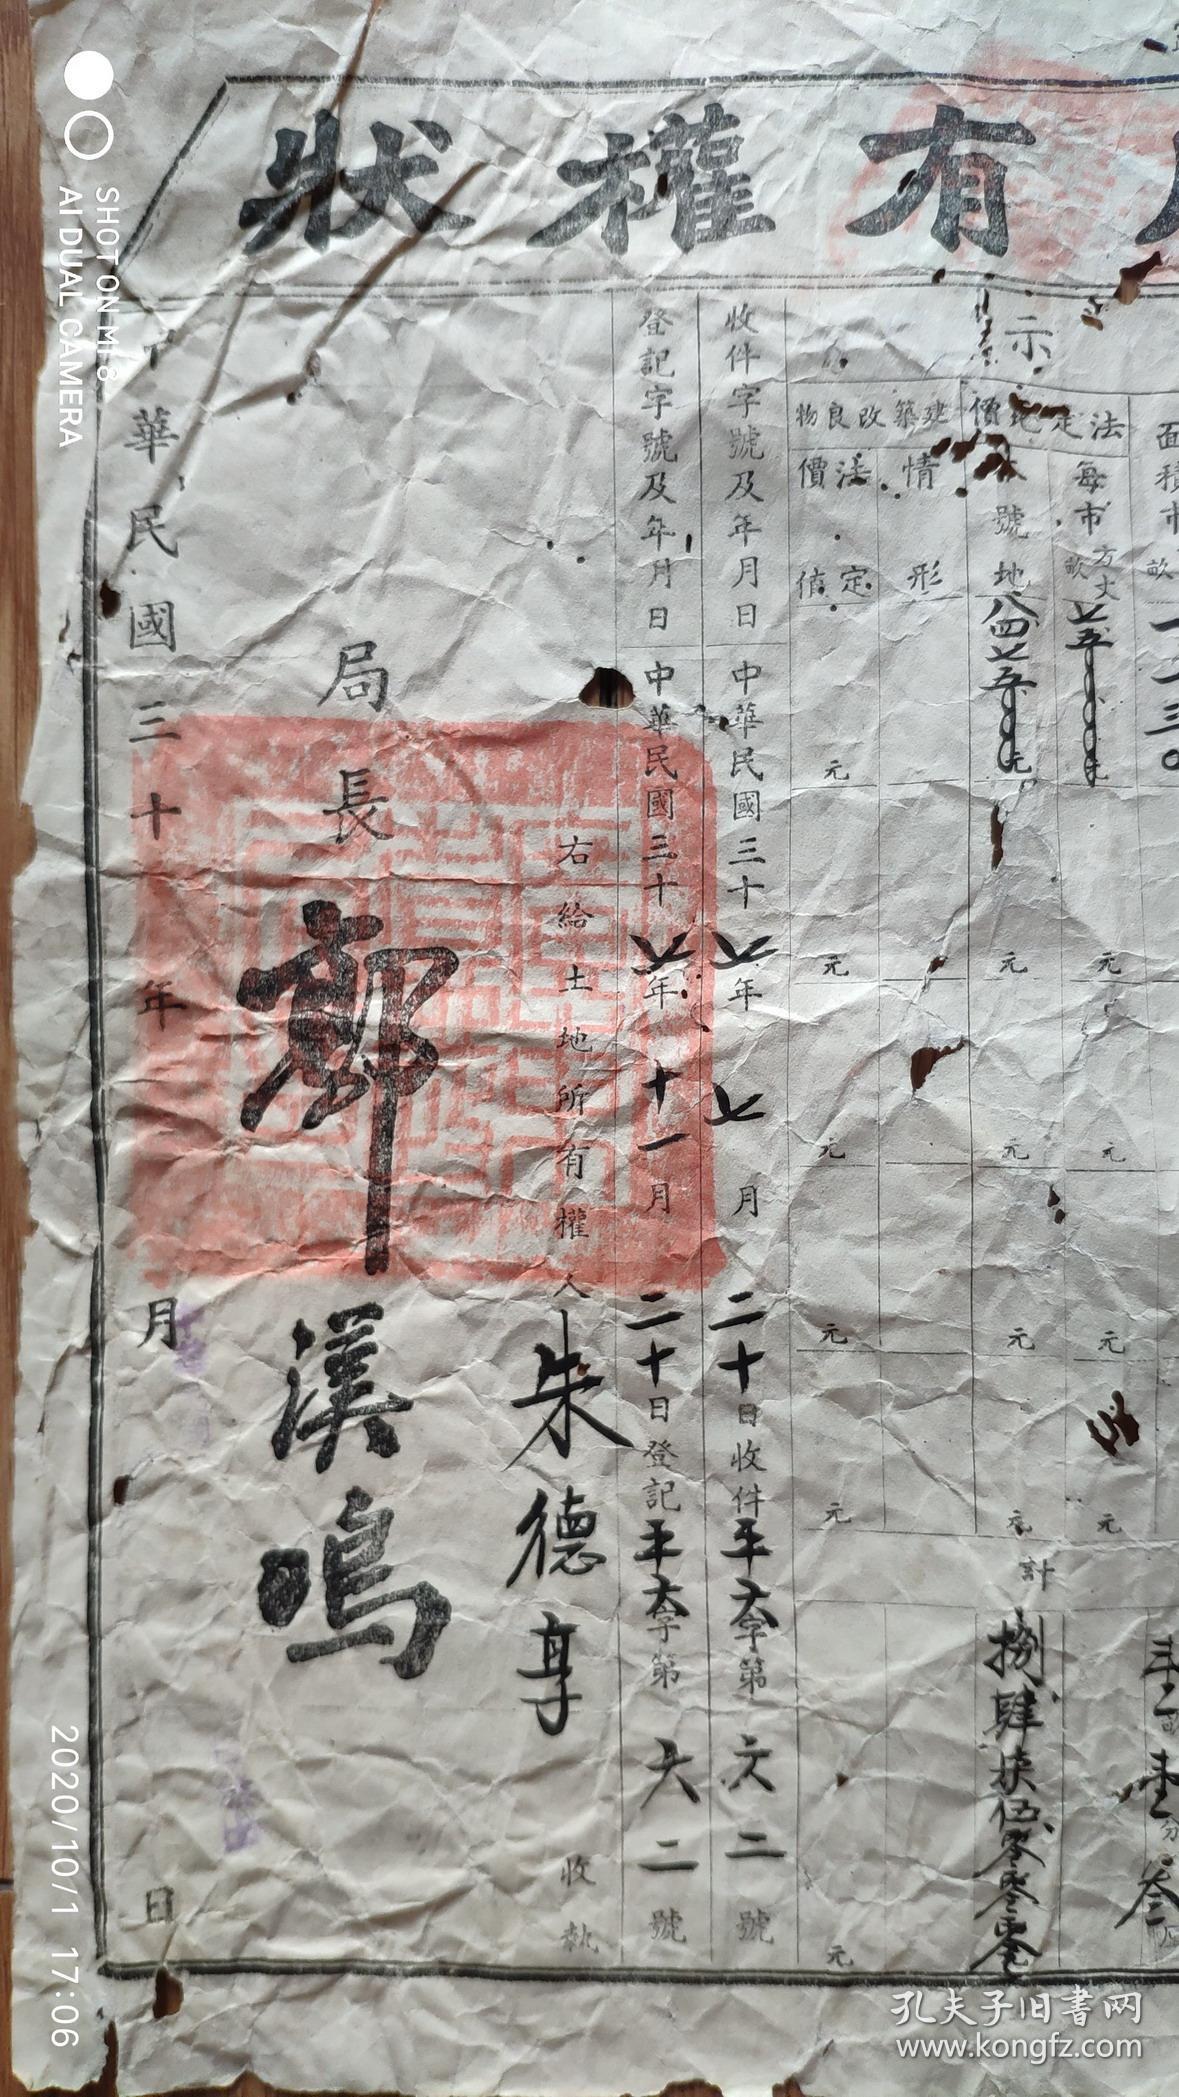 有權狀
示
面積市
畝
一二三〇
法定地價
每市方丈
畝
七五〇〇〇〇元
元
元
元
元
號地
八四七五〇〇〇元
元
元
元
元
計
捌肆柒伍零零零
建築改良物
情形
法定價值
元
元
元
元
元
元
收件字號及年月日
中華民國三十七年七月二十日收件平字第六二號
登記字號及年月日
中華民國三十七年十一月二十日登記平字第六二號
右給土地所有權人朱德尊收執
局長鄭漢鳴
華民國三十年月日
SHOT ON MI 8
AI DUAL CAMERA
2020/10/1 17:06
孔夫子旧书网
www.kongfz.com